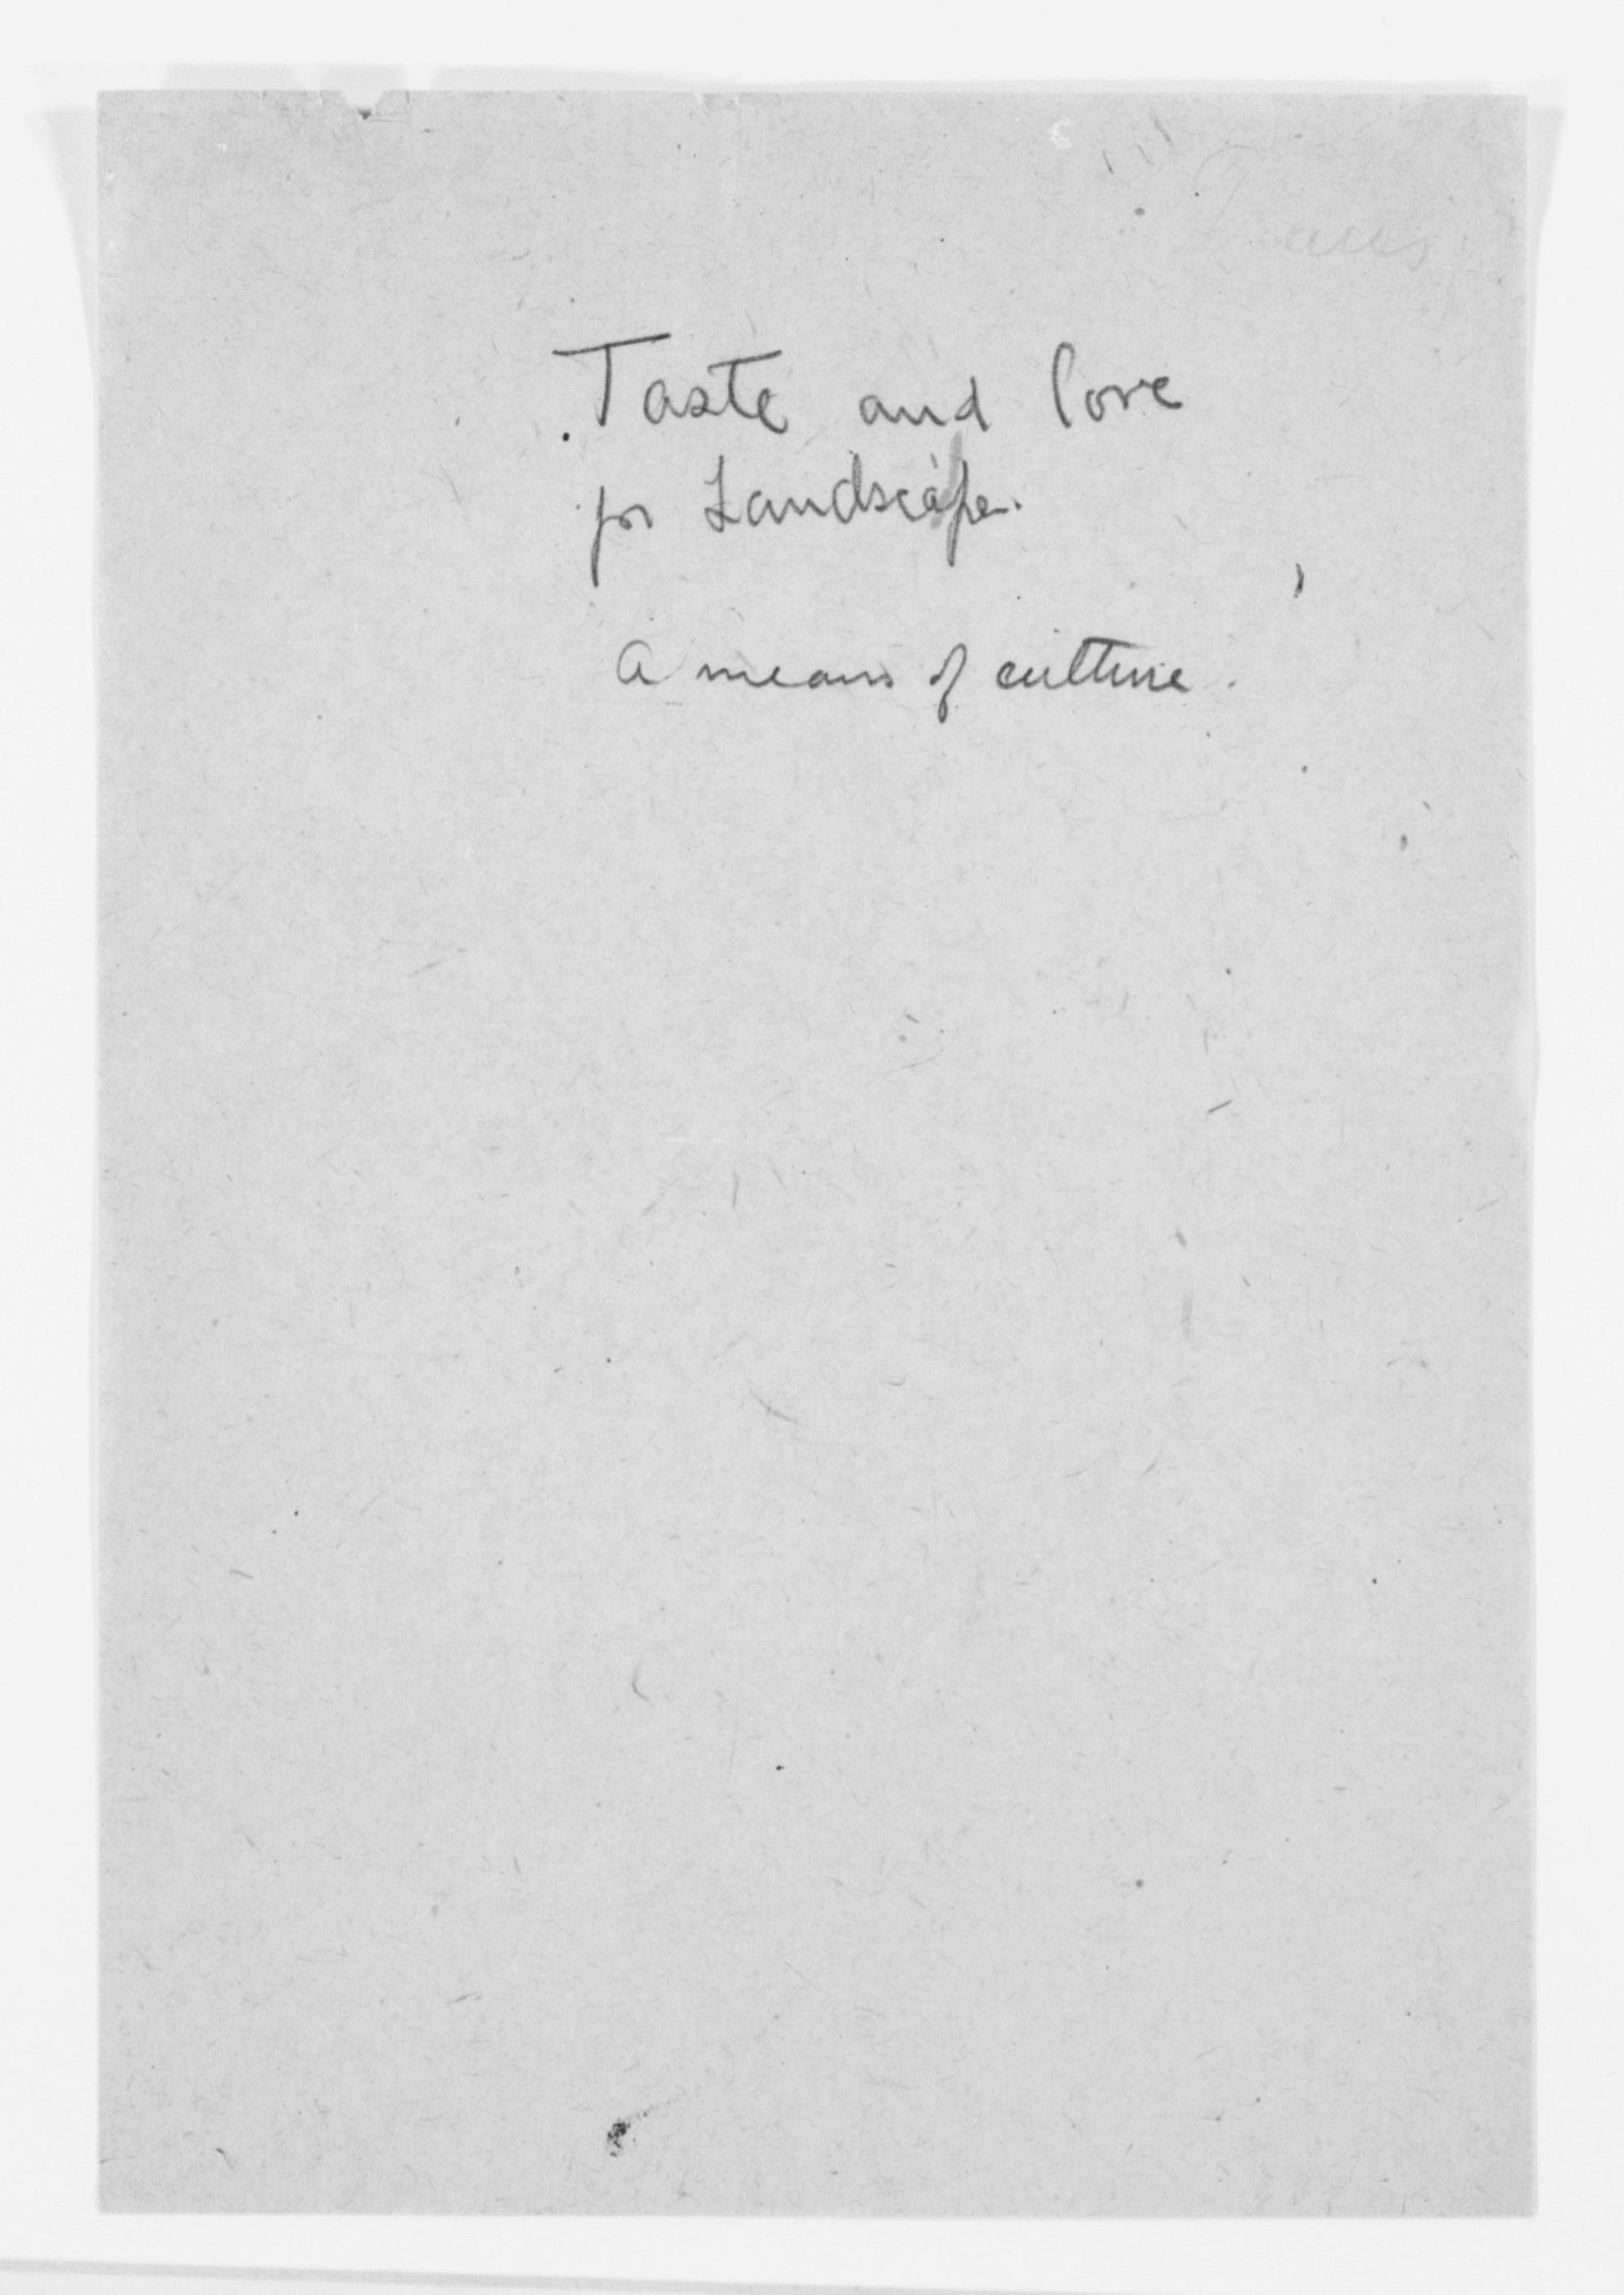 Taste and love
for Landscape.
A means of culture.